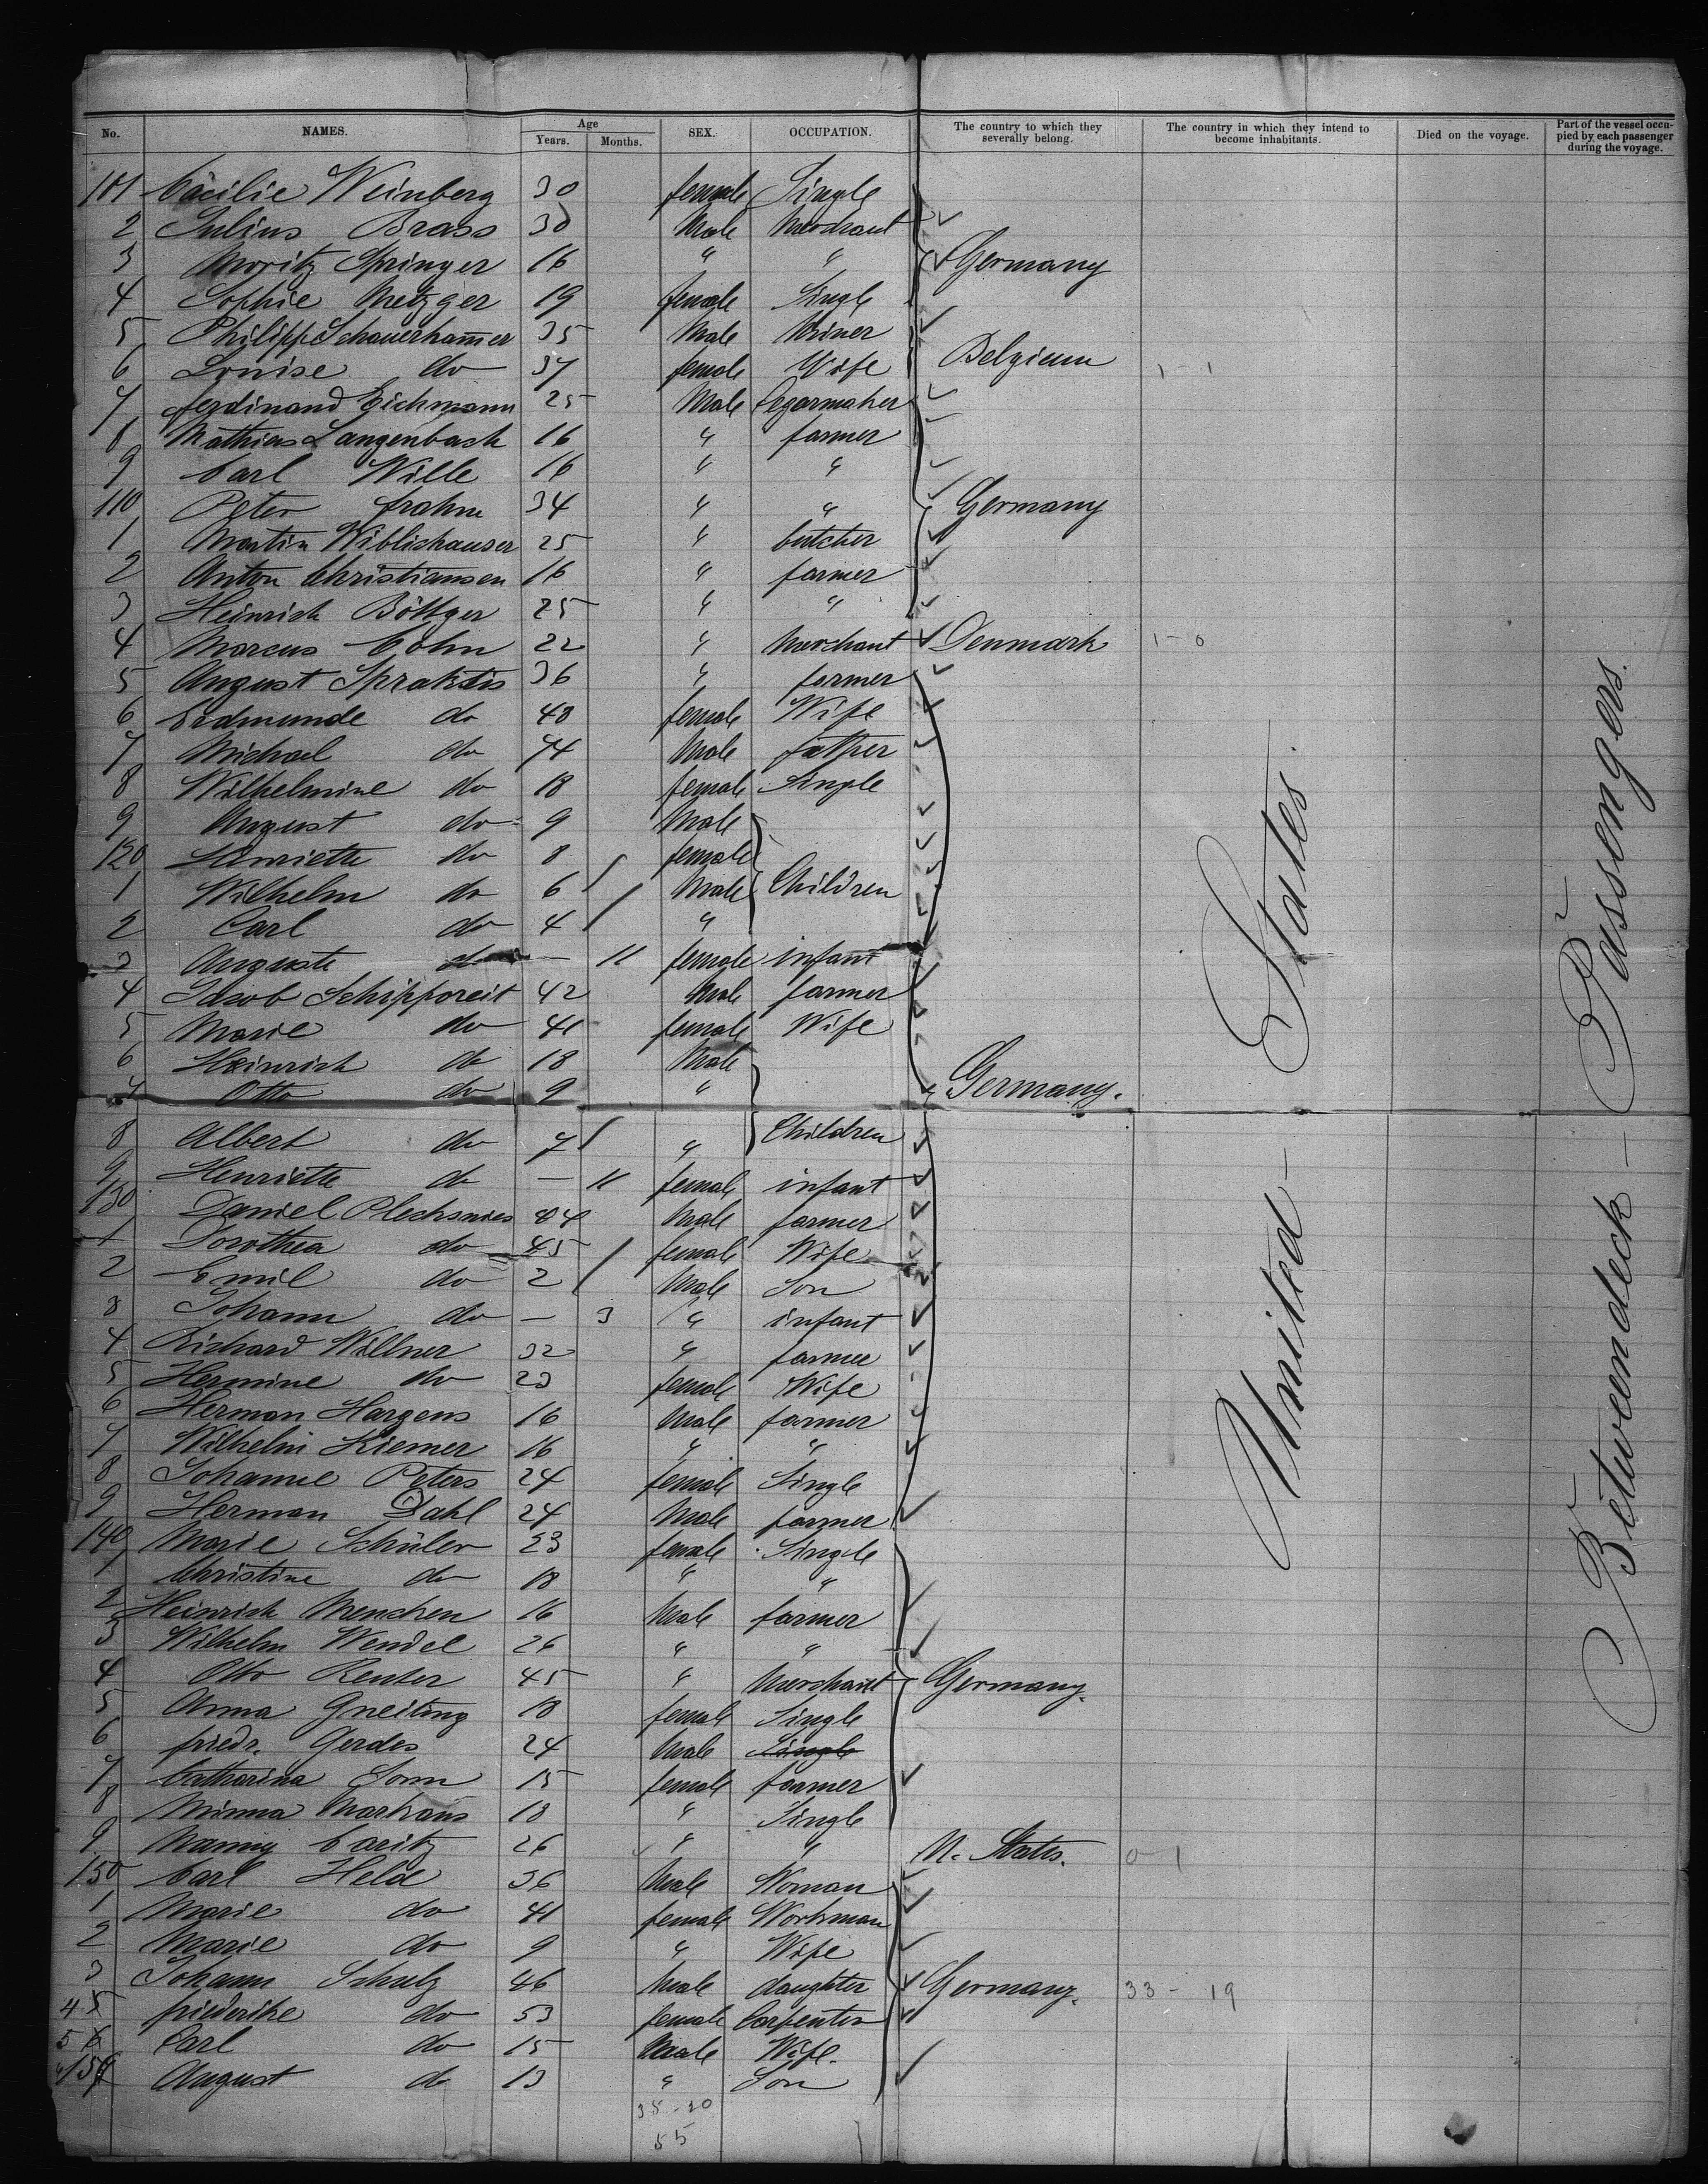 No. NAMES. Age Years. Months. SEX. OCCUPATION. The country to which they severally belong. The country in which they intend to become inhabitants. Died on the voyage. Part of the vessel occupied by each passenger during the voyage.
101 Cäcilie Weinberg 30 female Single
2 Julius Brass 30 Male Merchant
3 Moritz Springer 16 " " Germany
4 Sophie Metzger 19 female Single
5 Philipp Schauerham̅er 35 Male Miner
6 Louise do 37 female Wife Belgium 1 - 1
7 Ferdinand Eichmann 25 Male Segarmaker
8 Mathias Langenbach 16 " farmer
9 Carl Wille 16 " "
110 Peter Frahm 34 " " Germany
1 Martin Wiblishauser 25 " butcher
2 Anton Christiansen 16 " farmer
3 Heinrich Böttger 25 " "
4 Marcus Cohn 22 " Merchant Denmark 1 - 0
5 August Spraktis 36 " farmer
6 Erdmunde do 48 female Wife
7 Michael do 74 Male father
8 Wilhelmine do 18 female Single
9 August do 9 Male
120 Henriette do 8 female
1 Wilhelm do 6 Male Children
2 Carl do 4 "
3 Auguste do — 11 female infant
4 Jacob Schipporeit 42 Male farmer
5 Marie do 41 female Wife
6 Heinrich do 18 Male
7 Otto do 9 " Germany.
8 Albert do 7 " Children
9 Henriette do — 11 female infant
130 Daniel Plechsnies 44 Male farmer
1 Dorothea do 45 female Wife
2 Emil do 2 Male Son
3 Johann do — 3 " infant
4 Richard Willner 32 " farmer
5 Hermine do 23 female Wife
6 Herman Hargens 16 Male farmer
7 Wilhelm Kiemer 16 " "
8 Johanne Peters 24 female Single
9 Herman Dahl 24 Male farmer
140 Marie Schüler 23 female Single
1 Christine do 18 " "
2 Heinrich Menchen 16 Male farmer
3 Wilhelm Wendel 26 " "
4 Otto Reuter 45 " Merchant Germany.
5 Anna Gneiting 18 female Single
6 Friedr. Gerdes 24 Male Single
7 Catharina Sonn 15 female farmer
8 Minna Markans 18 " Single
9 Nanny Caritz 26 " " U. States. 0 - 1
150 Carl Helde 36 Male Woman
1 Marie do 41 female Workman
2 Marie do 9 " Wife
3 Johann Schulz 46 Male daughter Germany. 33 - 19
4 5 Friederike do 53 female Carpenter
5 6 Carl do 15 Male Wife.
156 August do 13 " Son
35 - 20
55
United States.
Betweendeck Passengers.